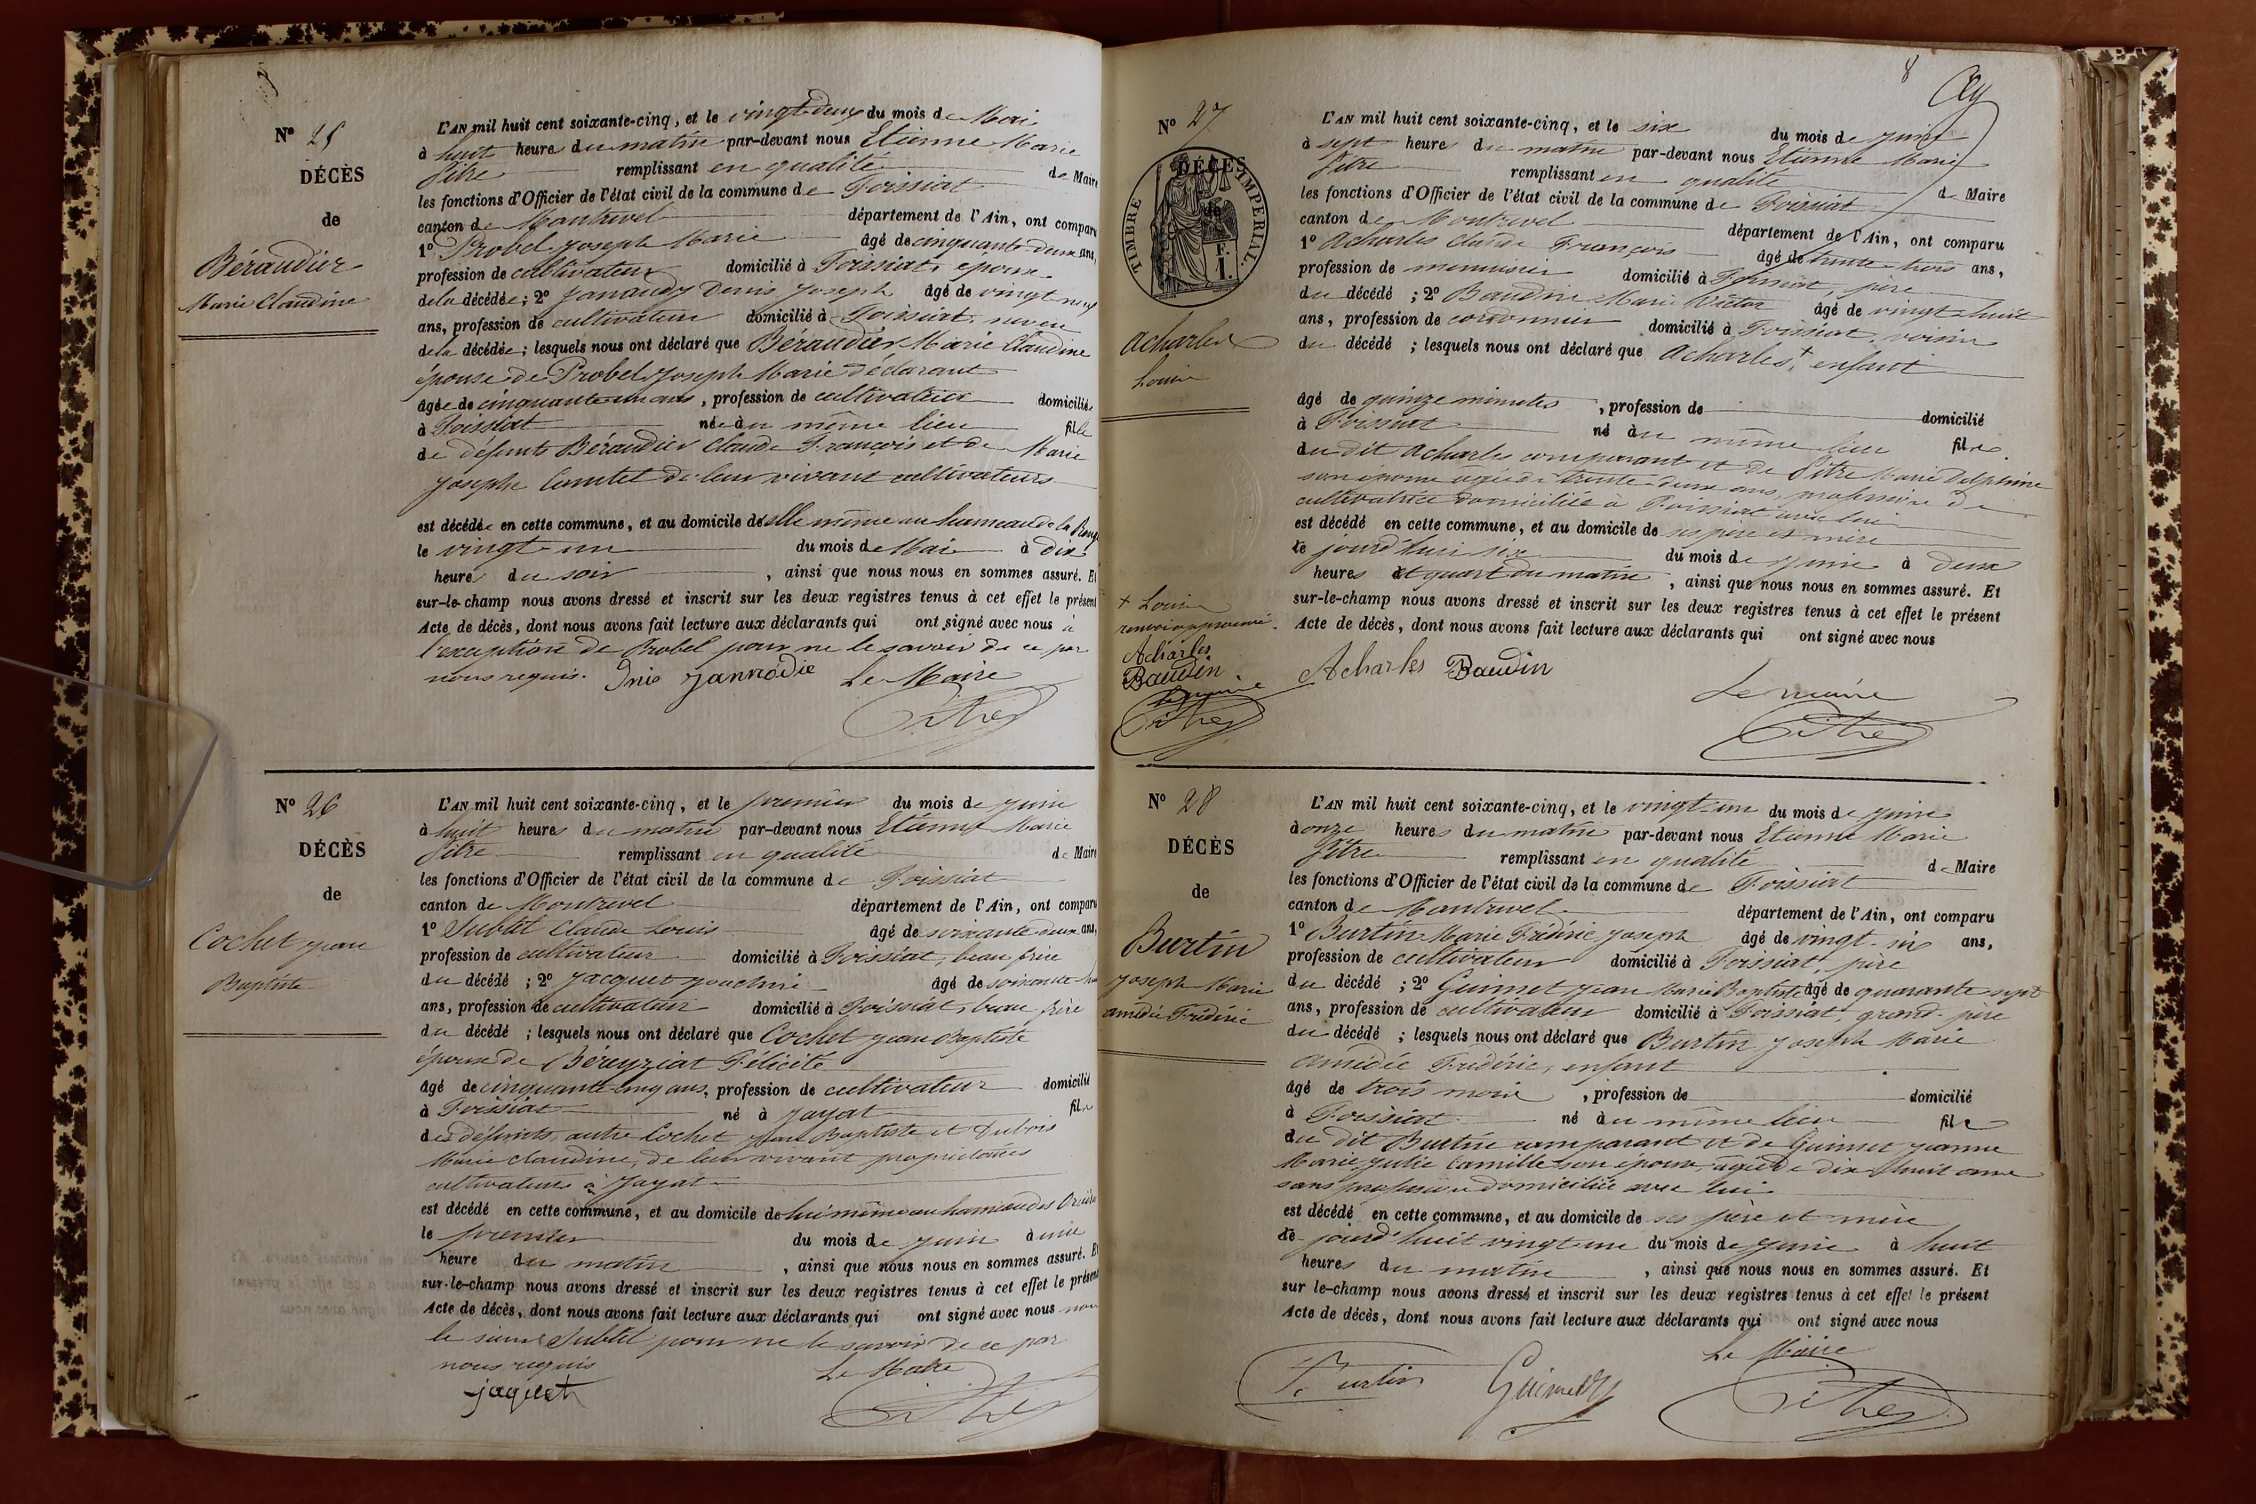 N° 25
DÉCÈS
de
Béraudier
Marie Claudine
L'AN mil huit cent soixante-cinq, et le vingt-deux du mois de Mai
à huit heures du matin par-devant nous Etienne Marie
Pitre remplissant en qualité de Maire
les fonctions d'Officier de l'état civil de la commune de Foissiat
canton de Montrevel département de l'Ain, ont comparu
1° Probel Joseph Marie âgé de cinquante-deux ans,
profession de cultivateur domicilié à Foissiat, époux
de la décédée; 2° Janaudy Denis Joseph âgé de vingt neuf
ans, profession de cultivateur domicilié à Foissiat, neveu
de la décédée; lesquels nous ont déclaré que Béraudier Marie Claudine
épouse de Probel Joseph Marie déclarant
âgée de cinquante-un ans, profession de cultivatrice domiciliée
à Foissiat née au même lieu fille
de défunts Béraudier Claude François et de Marie
Josephe Comtet de leur vivant cultivateurs
est décédée en cette commune, et au domicile d'elle même au hameau de la
le vingt-un du mois de Mai à dix
heures du soir, ainsi que nous nous en sommes assuré. Et
sur-le-champ nous avons dressé et inscrit sur les deux registres tenus à cet effet le présent
Acte de décès, dont nous avons fait lecture aux déclarants qui ont signé avec nous à
l'exception de Probel pour ne le savoir de ce par
nous requis. Le Maire
Pitre
N° 26
DÉCÈS
de
Cochet Jean
Baptiste
L'AN mil huit cent soixante-cinq, et le premier du mois de Juin
à huit heures du matin par-devant nous Etienne Marie
Pitre remplissant en qualité de Maire
les fonctions d'Officier de l'état civil de la commune de Foissiat
canton de Montrevel département de l'Ain, ont comparu
1° Subtil Claude Louis âgé de soixante deux ans,
profession de cultivateur domicilié à Foissiat, beau frère
du décédé; 2° Jacquet Joachin âgé de soixante
ans, profession de cultivateur domicilié à Foissiat, beau frère
du décédé; lesquels nous ont déclaré que Cochet Jean Baptiste
époux de Béreyziat Félicité
âgé de cinquante-cinq ans, profession de cultivateur domicilié
à Foissiat né à Jayat fils
des défunts autre Cochet Jean Baptiste et Dubois
Marie Claudine, de leur vivant propriétaires
cultivateurs à Jayat
est décédé en cette commune, et au domicile de lui même au hameau des
le premier du mois de Juin à une
heure du matin, ainsi que nous nous en sommes assuré. Et
sur-le-champ nous avons dressé et inscrit sur les deux registres tenus à cet effet le présent
Acte de décès, dont nous avons fait lecture aux déclarants qui ont signé avec nous non
le sieur Subtil pour ne le savoir de ce par
nous requis Le Maire
jaquet Pitre
8
N° 27
DÉCÈS
de
TIMBRE IMPÉRIAL.
1 F.
Acharles
Louis
+ Louis
renvoi approuvé.
Acharles
Baudin
Le maire
Pitre
L'AN mil huit cent soixante-cinq, et le six du mois de Juin
à sept heures du matin par-devant nous Etienne Marie
Pitre remplissant en qualité de Maire
les fonctions d'Officier de l'état civil de la commune de Foissiat
canton de Montrevel département de l'Ain, ont comparu
1° Acharles Claude François âgé de trente-trois ans,
profession de menuisier domicilié à Foissiat, père
du décédé; 2° Baudin Marie Victor âgé de vingt-huit
ans, profession de cordonnier domicilié à Foissiat, voisin
du décédé; lesquels nous ont déclaré que Acharles +, enfant
âgé de quinze minutes, profession de domicilié
à Foissiat né au même lieu fils
du dit Acharles comparant et de Pitre Marie Delphine
son épouse âgée de trente-deux ans, profession de
cultivatrice domiciliée à Foissiat avec lui
est décédé en cette commune, et au domicile de ses père et mère
le jourd'hui six du mois de Juin à deux
heures et quart du matin, ainsi que nous nous en sommes assuré. Et
sur-le-champ nous avons dressé et inscrit sur les deux registres tenus à cet effet le présent
Acte de décès, dont nous avons fait lecture aux déclarants qui ont signé avec nous
Acharles Baudin
Le maire
Pitre
N° 28
DÉCÈS
de
Burtin
Joseph Marie
amédée Frédéric
L'AN mil huit cent soixante-cinq, et le vingt-un du mois de Juin
à onze heures du matin par-devant nous Etienne Marie
Pitre remplissant en qualité de Maire
les fonctions d'Officier de l'état civil de la commune de Foissiat
canton de Montrevel département de l'Ain, ont comparu
1° Burtin Marie Frédéric Joseph âgé de vingt-six ans,
profession de cultivateur domicilié à Foissiat, père
du décédé; 2° Guimet Jean Marie Baptiste âgé de quarante sept
ans, profession de cultivateur domicilié à Foissiat, grand-père
du décédé; lesquels nous ont déclaré que Burtin Joseph Marie
Amédée Frédéric, enfant
âgé de trois mois, profession de domicilié
à Foissiat né au même lieu fils
du dit Burtin comparant et de Guimet Jeanne
Marie Julie Camille son épouse, âgée de dix-huit ans
sans profession domiciliée avec lui
est décédé en cette commune, et au domicile de ses père et mère
le jourd'huit vingt-un du mois de Juin à huit
heures du matin, ainsi que nous nous en sommes assuré. Et
sur le-champ nous avons dressé et inscrit sur les deux registres tenus à cet effet le présent
Acte de décès, dont nous avons fait lecture aux déclarants qui ont signé avec nous
Le Maire
Burtin Guimet Pitre